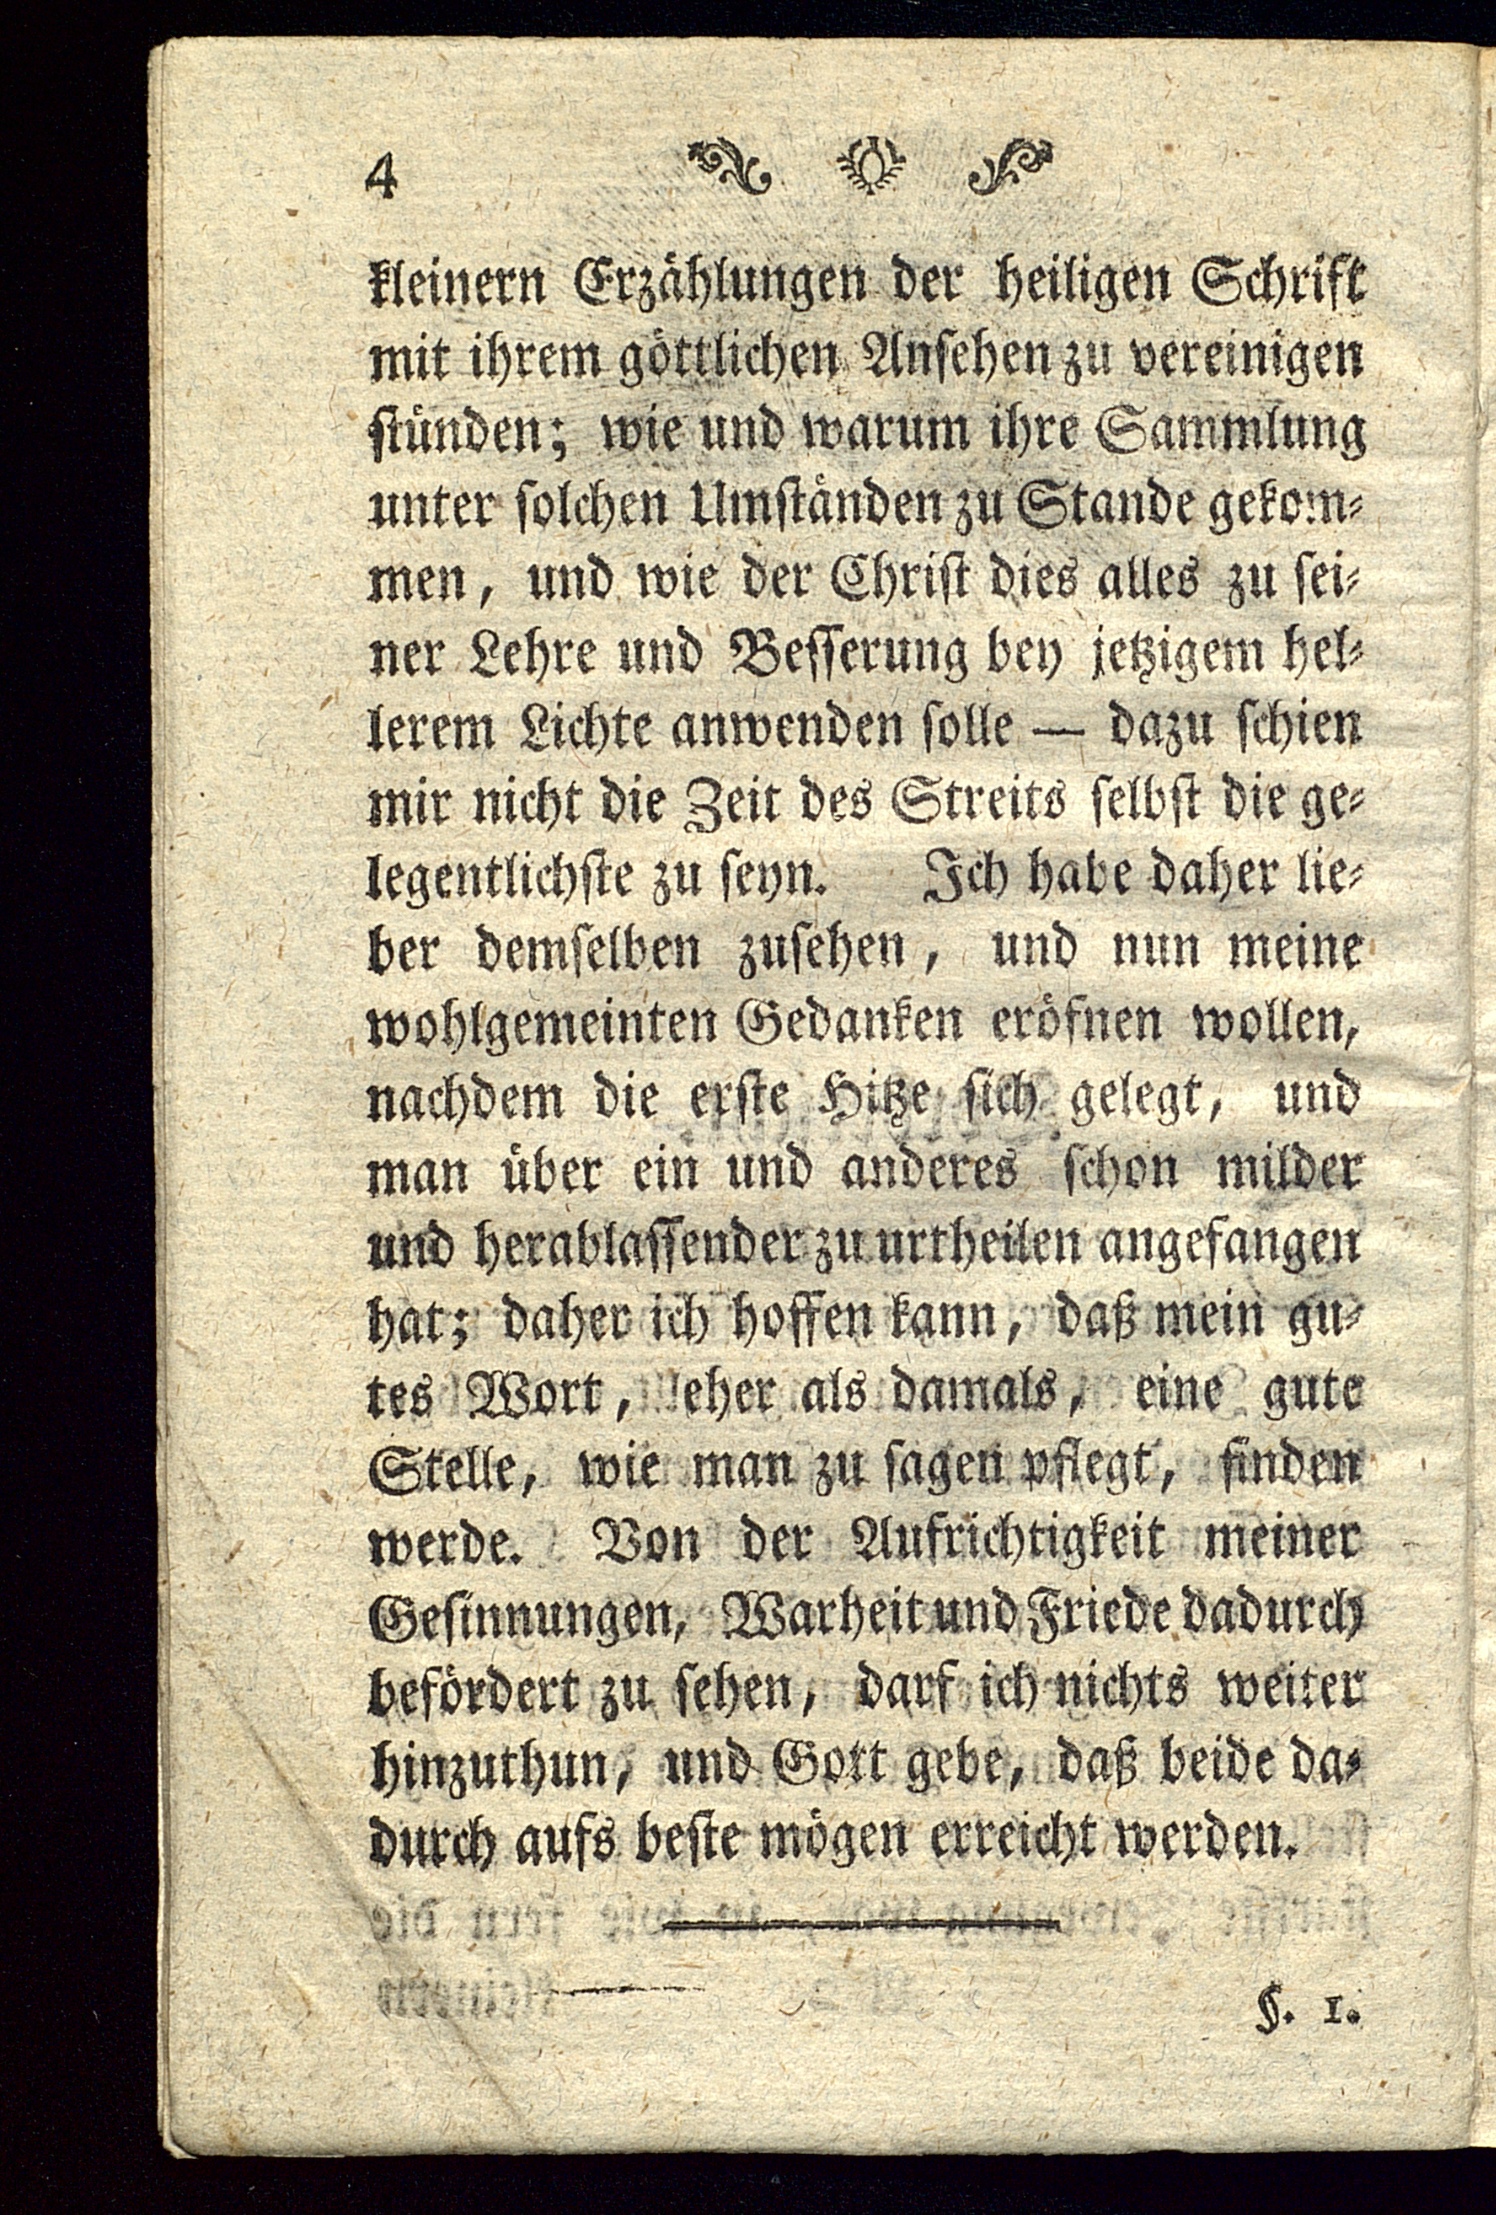 4
kleinern Erzählungen der heiligen Schrift
mit ihrem göttlichen Ansehen zu vereinigen
stünden; wie und warum ihre Sammlung
unter solchen Umständen zu Stande gekom-
men, und wie der Christ dies alles zu sei-
ner Lehre und Besserung bey jetzigem hel-
lerem Lichte anwenden solle — dazu schien
mir nicht die Zeit des Streits selbst die ge-
legentlichste zu seyn. Ich habe daher lie-
ber demselben zusehen, und nun meine
wohlgemeinten Gedanken eröfnen wollen,
nachdem die erste Hitze sich gelegt, und
man über ein und anderes schon milder
und herablassender zu urtheilen angefangen
hat; daher ich hoffen kann, daß mein gu-
tes Wort, eher als damals, eine gute
Stelle, wie man zu sagen pflegt, finden
werde. Von der Aufrichtigkeit meiner
Gesinnungen, Warheit und Friede dadurch
befördert zu sehen, darf ich nichts weiter
hinzuthun, und Gott gebe, daß beide da-
durch aufs beste mögen erreicht werden.
§. 1.